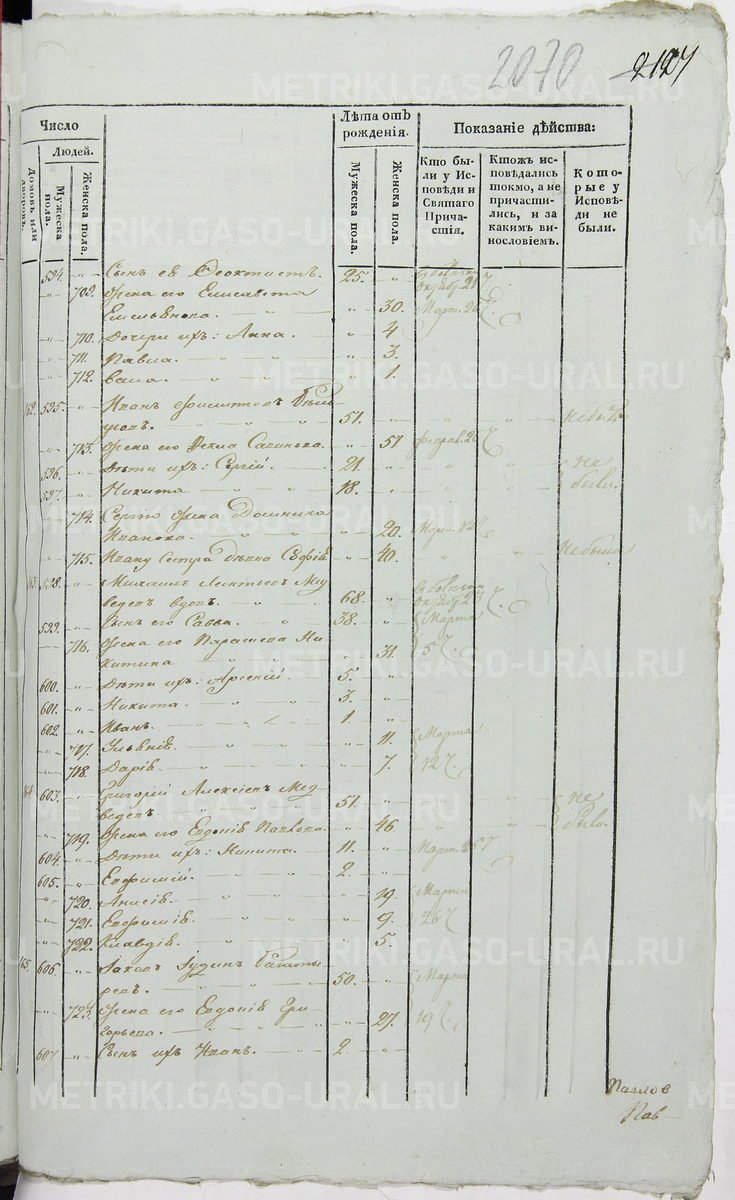 2070
2127
Число
Людей.
Домовъ или дворовъ.
Мужеска пола.
Женска пола.
Лѣта отъ рожденія.
Мужеска пола.
Женска пола.
Показаніе дѣйства:
Кто были у Исповѣди и Святаго Причастія.
Ктожъ исповѣдались токмо, а не причастились, и за какимъ винословіемъ.
Которые у Исповѣди не были.
594. Сынъ ея Ѳеоктистъ. 25.
709. Жена его Елисавета
Емельянова. 30. Март. 26
710. Дочери ихъ: Анна. 4
711. Павла. 3.
712. 1.
162. 595. Иванъ
51. не былъ
713. Жена его Ѳекла Савинова. 51 Феврал. 26
596. Дѣти ихъ: Сергій. 21. не
597. Никита 18. были.
714. Сергія жена Домника
Иванова. 20. Март. 12
715. Ивану сестра дѣвка Софія. 40. не была
163. 598. Михаилъ Леонтьевъ Мед
ведевъ вдовъ. 68.
599. Сынъ его Савва. 38. Марта
716. Жена его Парасковія Ни
китина 31. 5
600. Дѣти ихъ: Арсеній. 5.
601. Никита. 3.
602. Иванъ. 1.
717. Ульянія. 11. Марта
718. Дарія. 7. 12
164. 603. Григорій Алексѣевъ Мед
ведевъ. 51. не
719. Жена его Евдокія Павлова. 46 были.
604. Дѣти ихъ: Никита. 11. Март. 26
605. Евфимій. 2.
720. Анисія. 19. Марта
721. Евфимія. 9. 26
722. Клавдія. 5.
165. 606. Іудинъ Багаты
ревъ. 50. Марта
723. Жена его Евдокія Гри
горьева. 27. 19
607 Сынъ ихъ Иванъ. 2.
Павловъ
Пав
METRIKI.GASO-URAL.RU